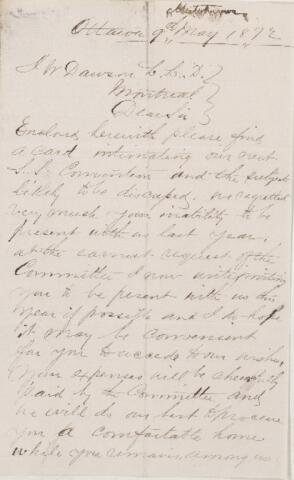 Ottawa 9th May 1872
J W Dawson L.L.D.
Montreal
Dear Sir
Enclosed herewith please find
a card intimating our next
S.S. Convention and the subjects
likely to be discussed, we regretted
very much your inability to be
present with us last year,
at the earnest request of the
Committee I now write inviting
you to be present with us this
year if possible and I do hope
it may be convenient
for you to accede to our wishes,
Your expenses will be cheerfully
paid by the Committee and
we will do our best to procure
you a comfortable home
while you remain among us.